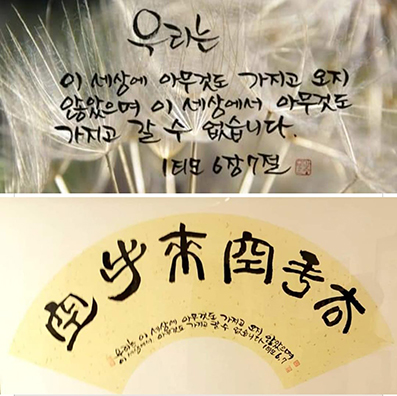 우리는
이 세상에 아무것도 가지고 오지
않았으며 이 세상에서 아무것도
가지고 갈 수 없습니다.
1티모 6장7절
空手來空手去
우리는 이 세상에 아무것도 가지고 오지 않았으며
이 세상에서 아무것도 가지고 갈 수 없습니다 1티모 6.7